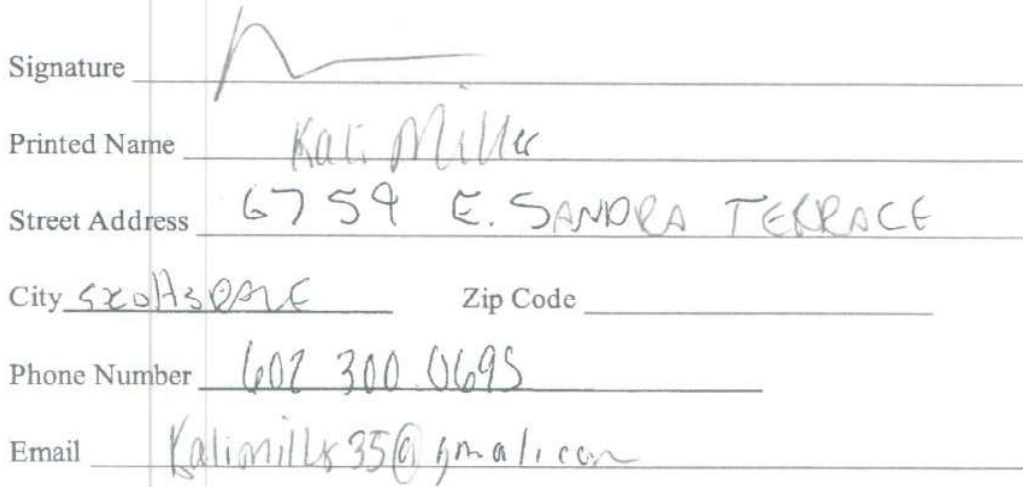 Signature
Printed Name Kali Miller
Street Address 6759 E. SANDRA TERRACE
City SCOttSDALE Zip Code
Phone Number 602 300 0695
Email Kalimiller35@gmail.com